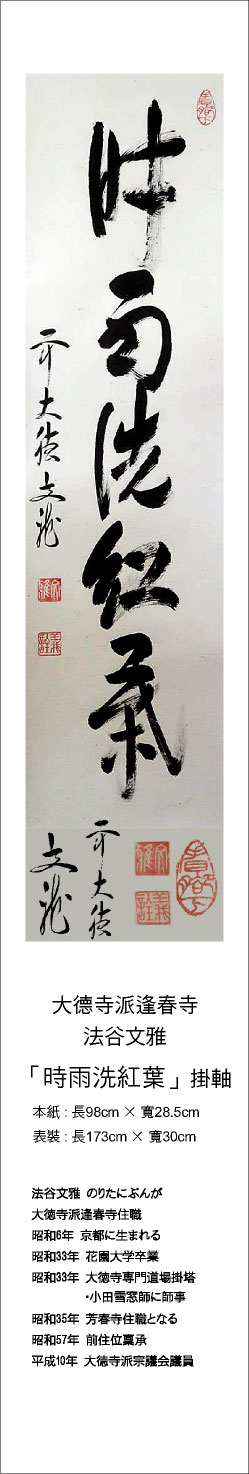 時雨洗紅葉
前大徳文雅
文雅
義詮
前大徳
文雅
文雅
義詮
大德寺派逢春寺
法谷文雅
「時雨洗紅葉」掛軸
本紙 : 長98cm × 寬28.5cm
表裝 : 長173cm × 寬30cm
法谷文雅 のりたにぶんが
大徳寺派逢春寺住職
昭和6年 京都に生まれる
昭和33年 花園大学卒業
昭和33年 大徳寺専門道場掛塔
・小田雪窓師に師事
昭和35年 芳春寺住職となる
昭和57年 前住位稟承
平成10年 大徳寺派宗議会議員